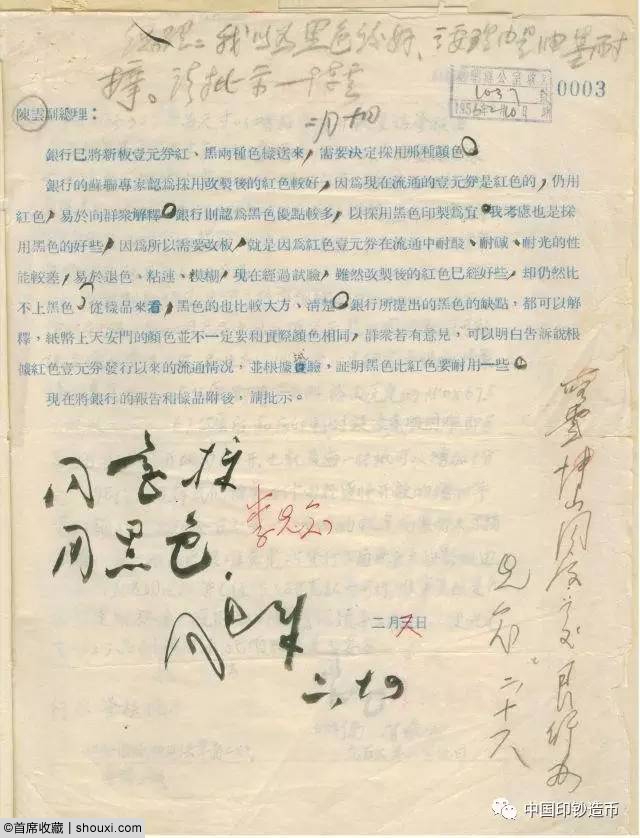 總理：我以为黑色較好，主要理由是油墨耐
擦。请批示 陈云
二月十四
1037
1956年2月10日
0003
陳雲副總理：
銀行已將新板壹元券紅、黑兩種色樣送來，需要決定採用那種顏色。
銀行的蘇聯專家認爲採用改製後的紅色較好，因爲現在流通的壹元券是紅色的，仍用
紅色，易於向群衆解釋。銀行則認爲黑色優點較多，以採用黑色印製爲宜。我考慮也是採
用黑色的好些，因爲所以需要改板，就是因爲紅色壹元券在流通中耐酸、耐碱、耐光的性
能較差，易於退色、粘連、模糊，現在經過試驗，雖然改製後的紅色已經好些，却仍然比
不上黑色，從樣品來看，黑色的也比較大方、清楚。銀行所提出的黑色的缺點，都可以解
釋，紙幣上天安門的顏色並不一定要和實際顏色相同，群衆若有意見，可以明白告訴說根
據紅色壹元券發行以來的流通情況，並根據試驗，証明黑色比紅色要耐用一些。
現在將銀行的報告和樣品附後，請批示。
同意採
用黑色。
李先念
周恩来
二、十四
二月六日
先念 二、十八
首席收藏 | shouxi.com
中国印钞造币